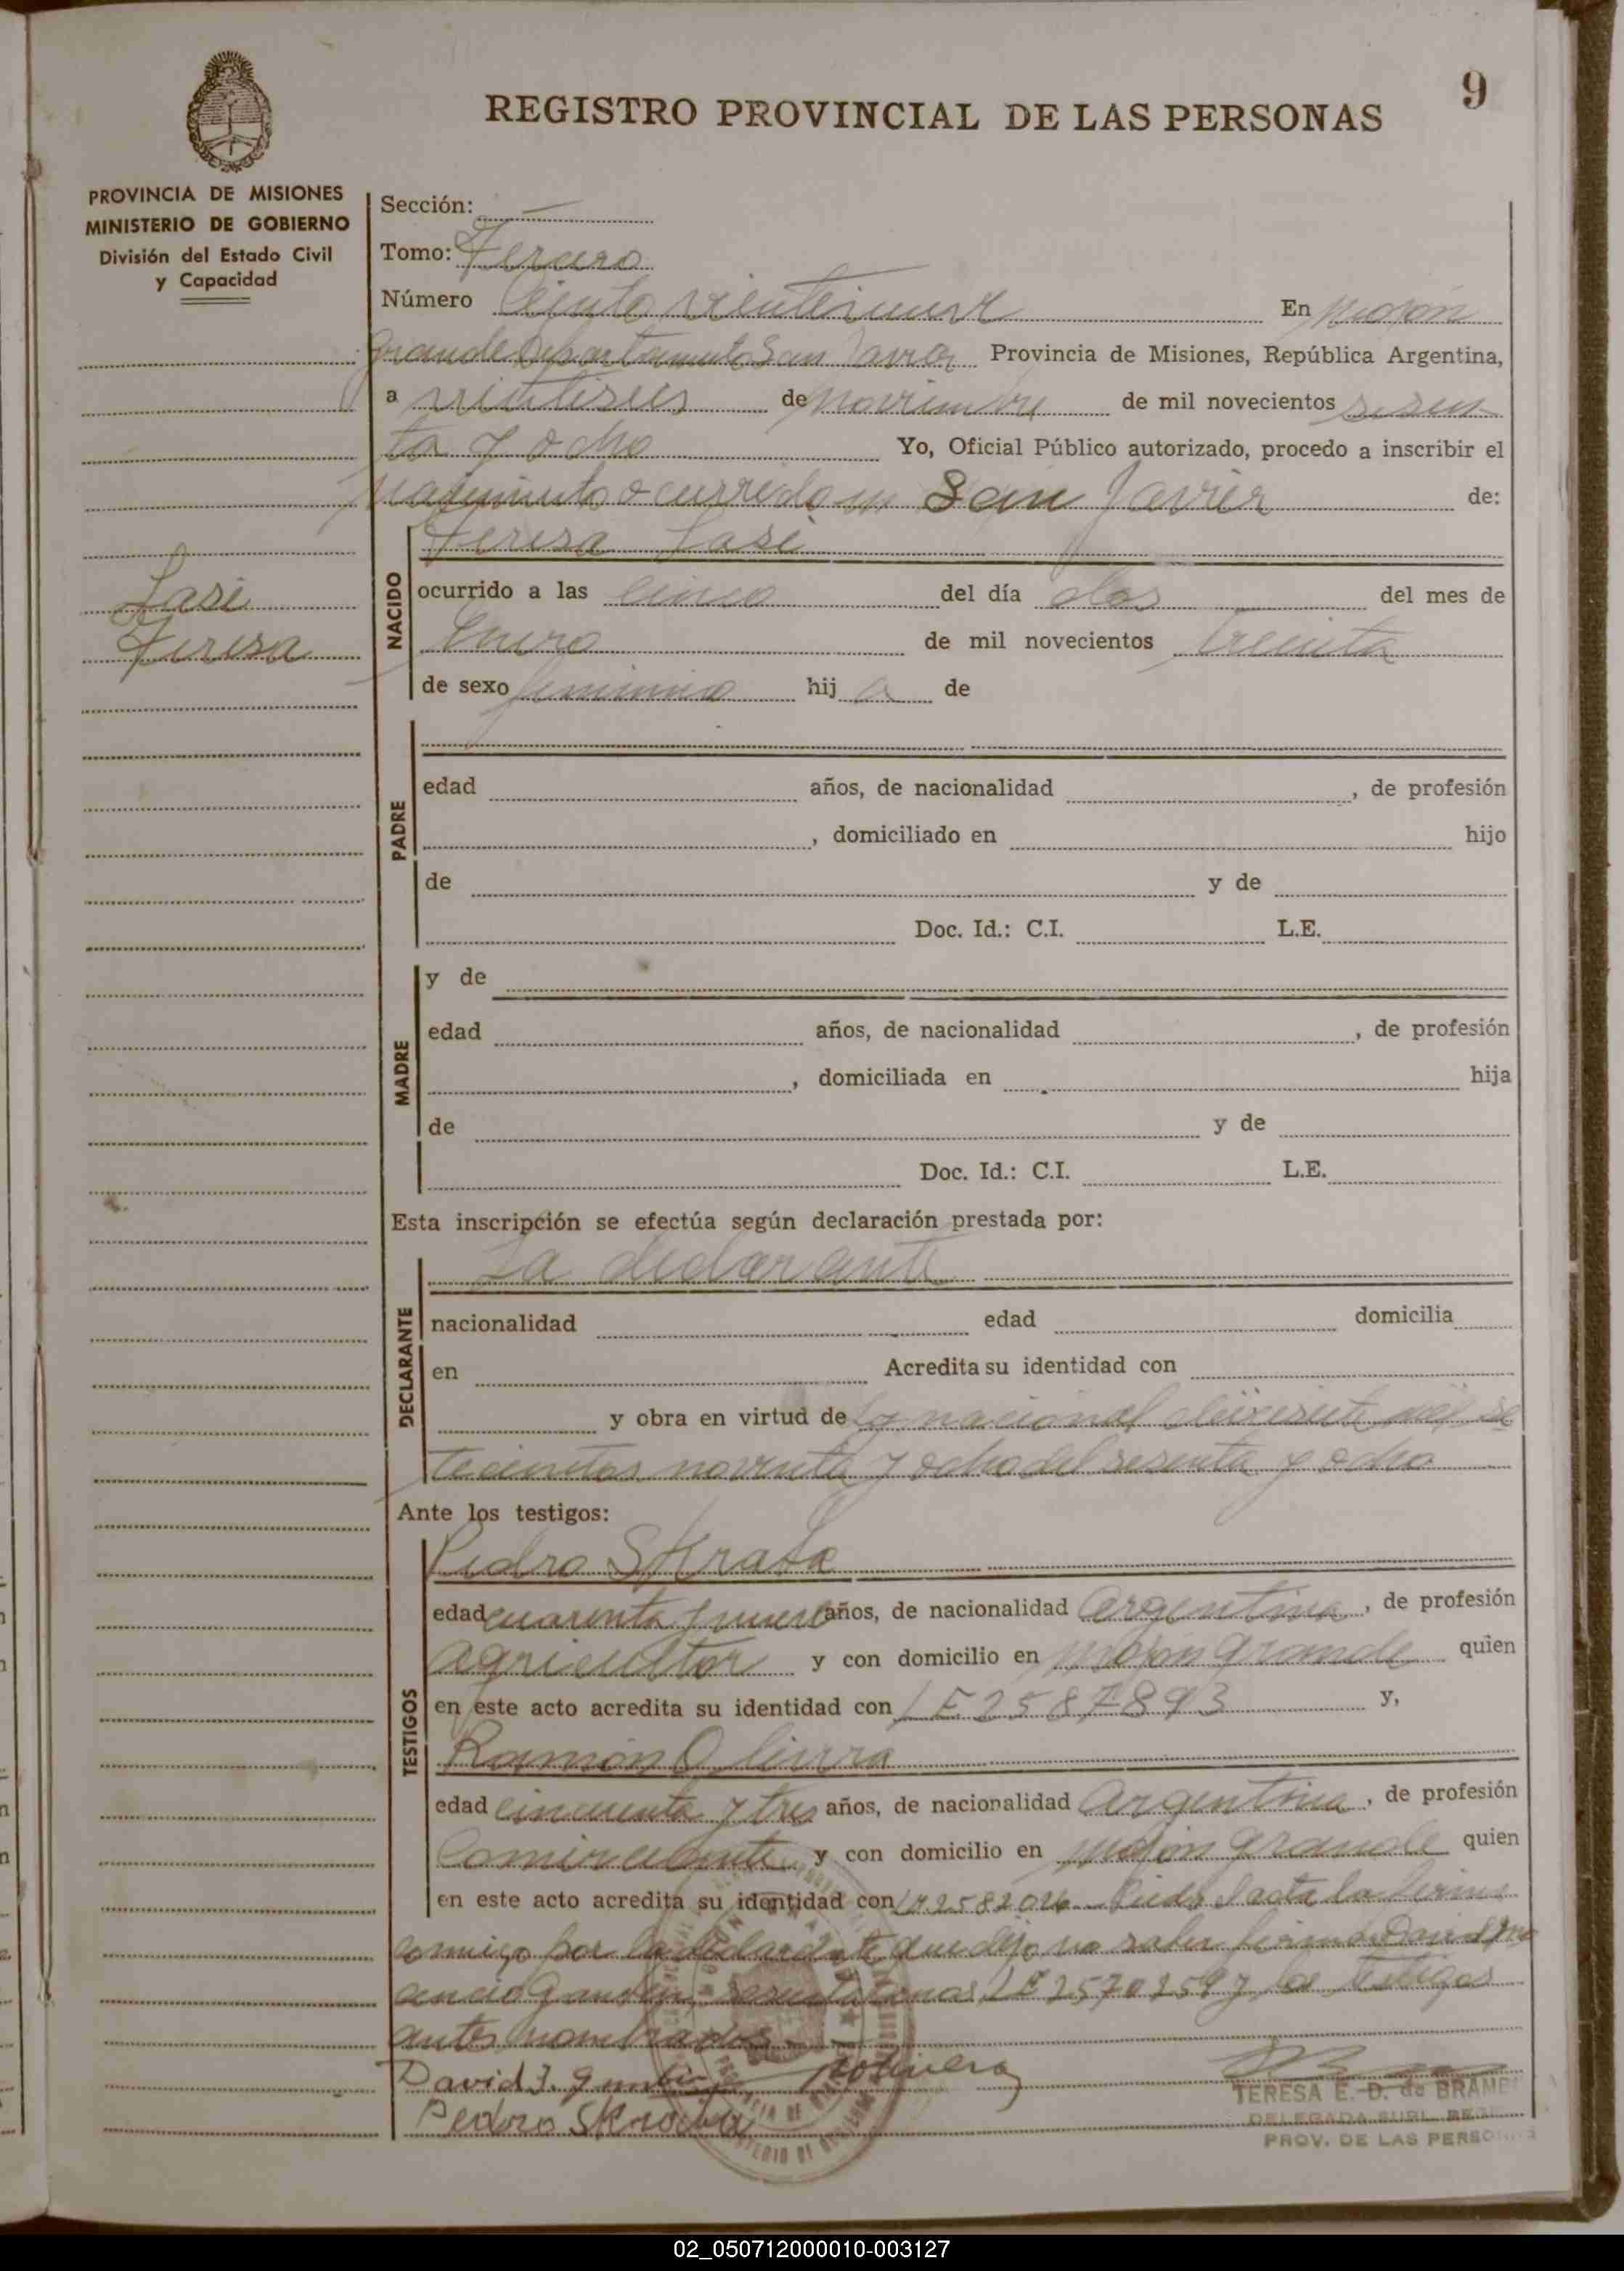 9
REGISTRO PROVINCIAL DE LAS PERSONAS
PROVINCIA DE MISIONES
MINISTERIO DE GOBIERNO
División del Estado Civil
y Capacidad
Sección:
Tomo: Tercero
Número Ciento veintinueve En Mojón
Grande Departamento San Javier Provincia de Misiones, República Argentina,
a veintiseis de Noviembre de mil novecientos sesen
ta y ocho Yo, Oficial Público autorizado, procedo a inscribir el
Nacimiento ocurrido en San Javier de:
NACIDO
Teresa
Teresa
ocurrido a las cinco del día dos del mes de
Enero de mil novecientos treinta
de sexo femenino hij a de
PADRE
edad años, de nacionalidad , de profesión
, domiciliado en hijo
de y de
Doc. Id.: C.I. L.E.
MADRE
y de
edad años, de nacionalidad , de profesión
, domiciliada en hija
de y de
Doc. Id.: C.I. L.E.
Esta inscripción se efectúa según declaración prestada por:
DECLARANTE
La declarante
nacionalidad edad domicilia
en Acredita su identidad con
y obra en virtud de Ley nacional diecisiete mil se
tecientos noventa y ocho del sesenta y ocho
Ante los testigos:
TESTIGOS
Pedro Skraba
edad cuarenta y nueve años, de nacionalidad Argentina, de profesión
agricultor y con domicilio en Mojón grande quien
en este acto acredita su identidad con LE 2587893 y,
Ramón Olivera
edad cincuenta y tres años, de nacionalidad Argentina, de profesión
Comerciante y con domicilio en Mojón grande quien
en este acto acredita su identidad con 2582026 Leida el acta la firma
conmigo por la declarante que dijo no saber firmar David
sesenta LE los testigos
antes nombrados
David J.
Olivera
Pedro Skraba
TERESA E. D. de BRAMB
DELEGADA
PROV. DE LAS PERSONAS
02_050712000010-003127